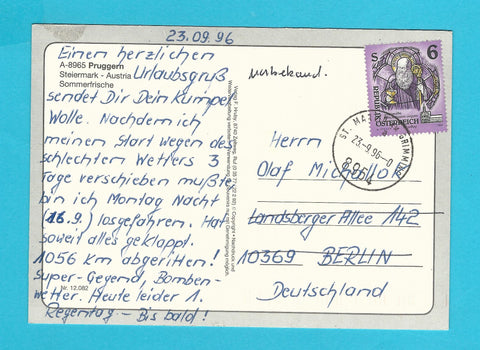 23.09.96
Einen herzlichen
A-8965 Pruggern
Steiermark - Austria
Sommerfrische
Urlaubsgruß
sendet Dir Dein Kumpel
Wolle. Nachdem ich
meinen Start wegen des
schlechten Wetters 3
Tage verschieben mußte
bin ich Montag Nacht
(16.9.) losgefahren. Hat
soweit alles geklappt.
1056 Km abgeritten!
Super-Gegend, Bomben-
wetter. Heute leider 1.
Regentag – Bis bald!
Nr. 12.082
unbekannt.
S 6
REPUBLIK
ÖSTERREICH
23.-9.96-0
Herrn
Olaf
Landsberger Allee 142
10369 BERLIN
Deutschland